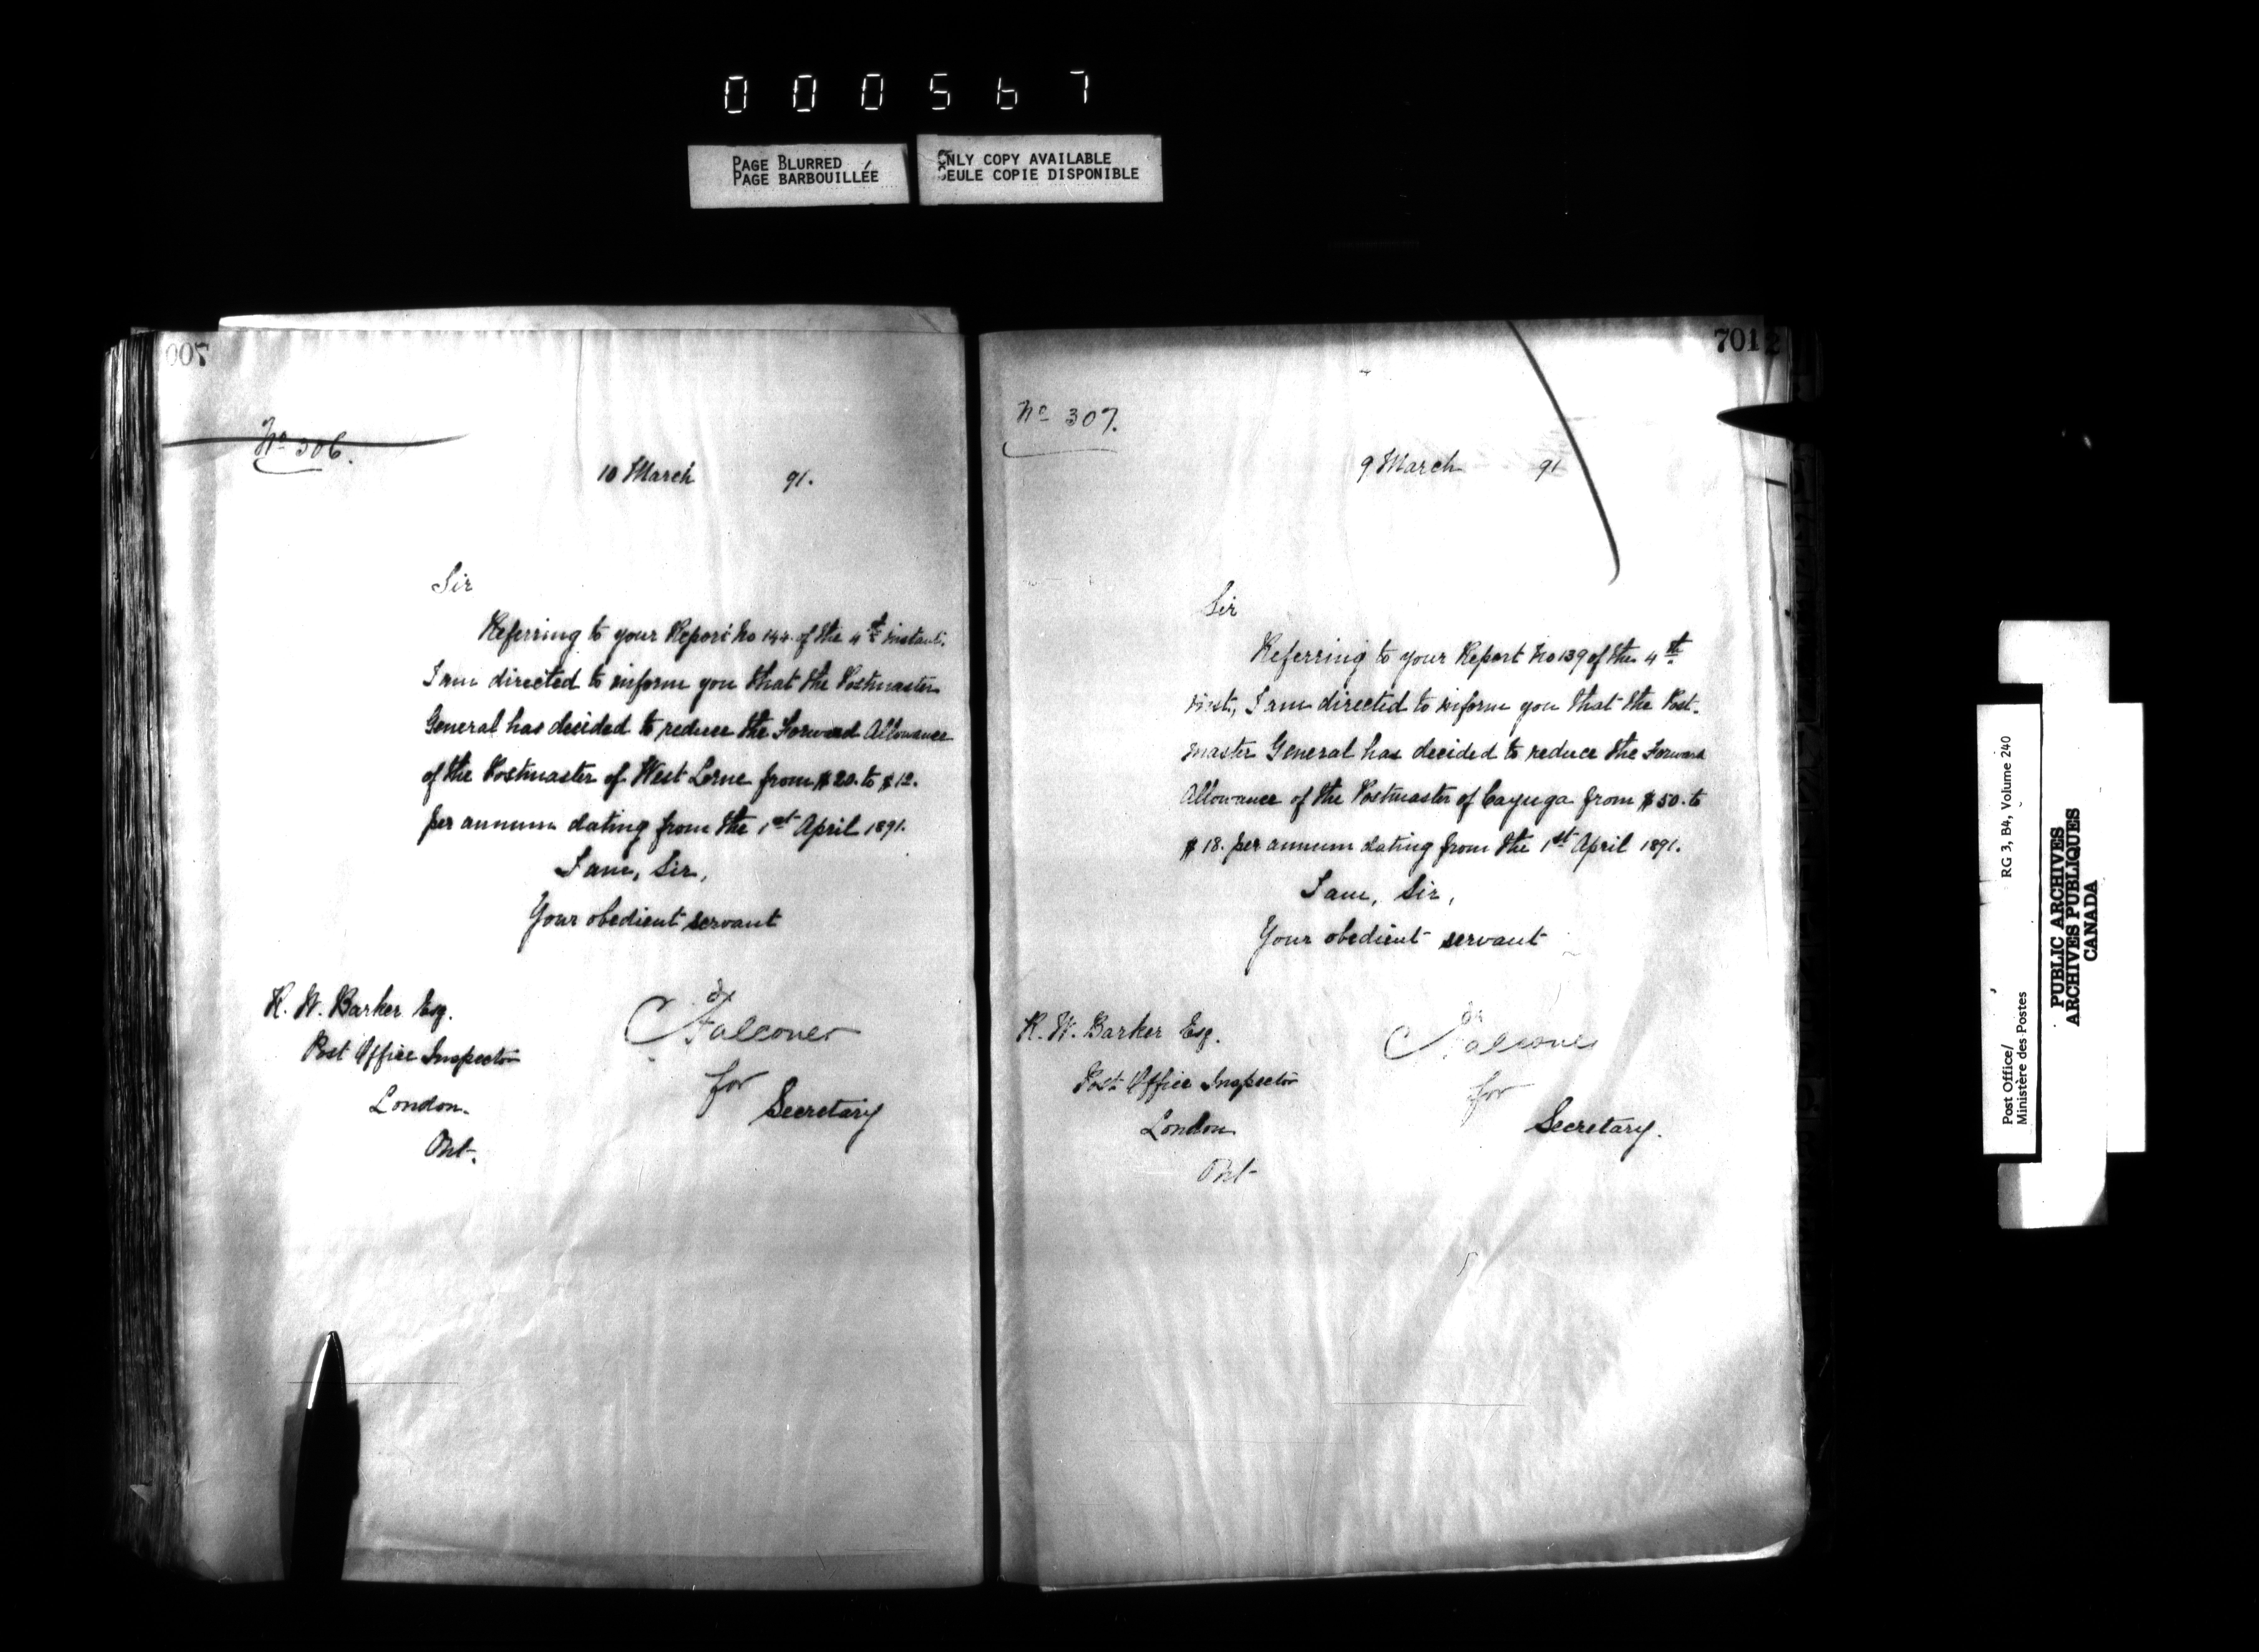 000567
PAGE BLURRED
PAGE BARBOUILLÉE
ONLY COPY AVAILABLE
SEULE COPIE DISPONIBLE
700
No 306.
10 March 91.
Sir
Referring to your Report No 144 of the 4th instant.
I am directed to inform you that the Postmaster
General has decided to reduce the Forward Allowance
of the Postmaster of West Lorne from $20. to $12.
per annum dating from the 1st April 1891.
I am, Sir,
Your obedient servant
R. W. Barker Esq.
Post Office Inspector
London.
Ont.
C Falconer
for
Secretary
701
No 307.
9 March 91
Sir
Referring to your Report No 139 of the 4th
inst., I am directed to inform you that the Post-
master General has decided to reduce the Forward
Allowance of the Postmaster of Cayuga from $50. to
$18. per annum dating from the 1st April 1891.
I am, Sir,
Your obedient servant
R. W. Barker Esq.
Post Office Inspector
London
Ont
C Falconer
for
Secretary.
Post Office/
Ministère des Postes
RG 3, B4, Volume 240
PUBLIC ARCHIVES
ARCHIVES PUBLIQUES
CANADA